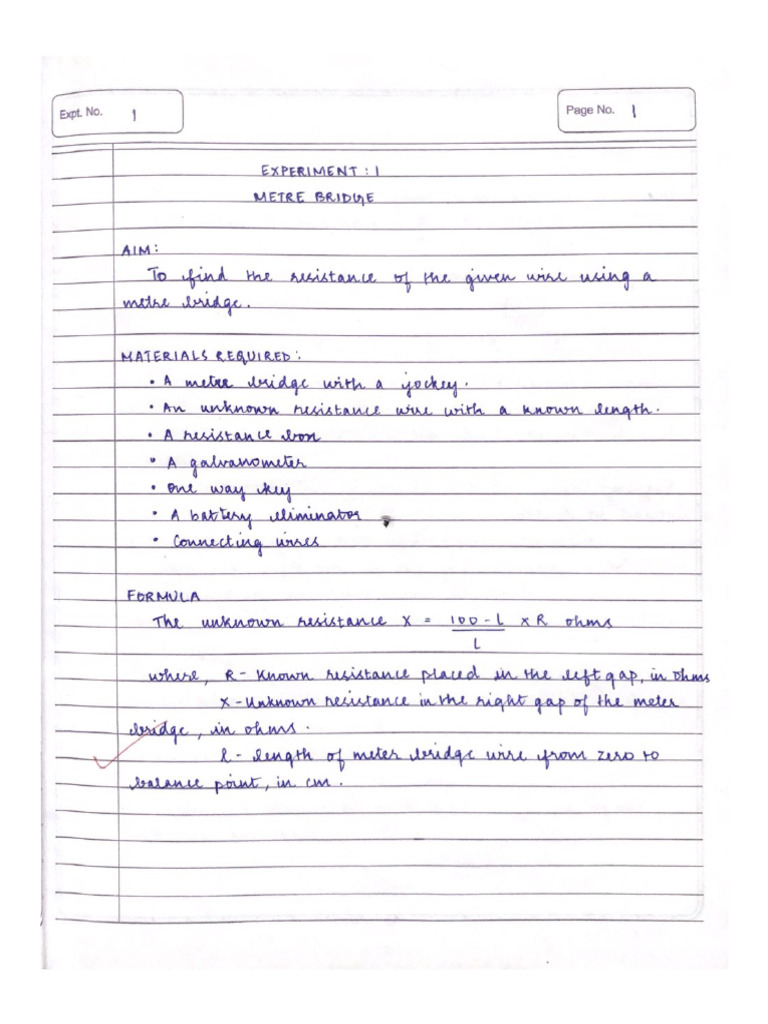 Expt. No. 1
Page No. 1
EXPERIMENT : 1
METRE BRIDGE
AIM:
To find the resistance of the given wire using a
metre bridge.
MATERIALS REQUIRED:
• A metre bridge with a jockey.
• An unknown resistance wire with a known length.
• A resistance box
• A galvanometer
• One way key
• A battery eliminator
• Connecting wires
FORMULA
The unknown resistance X = 100 - L × R ohms
L
where, R - Known resistance placed in the left gap, in ohms
X - Unknown resistance in the right gap of the meter
bridge, in ohms.
l - length of meter bridge wire from zero to
balance point, in cm.